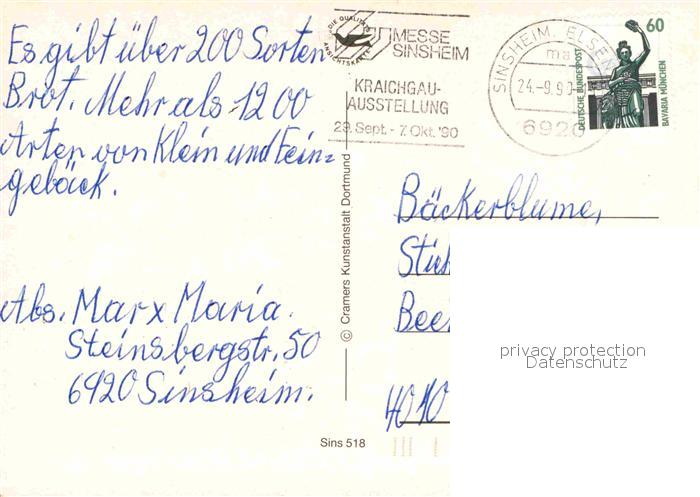 Es gibt über 200 Sorten
Brot. Mehr als 1200
Arten von Klein und Fein=
gebäck.
Abs. Marx Maria.
Steinsbergstr. 50
6920 Sinsheim.
DIE QUALITÄTS
ANSICHTSKARTE
MESSE
SINSHEIM
KRAICHGAU-
AUSSTELLUNG
29. Sept. - 7. Okt. '90
SINSHEIM, ELSENZ
ma
24.-9.90
6920
60
DEUTSCHE BUNDESPOST
BAVARIA MÜNCHEN
© Cramers Kunstanstalt Dortmund
Bäckerblume,
4010
privacy protection
Datenschutz
Sins 518